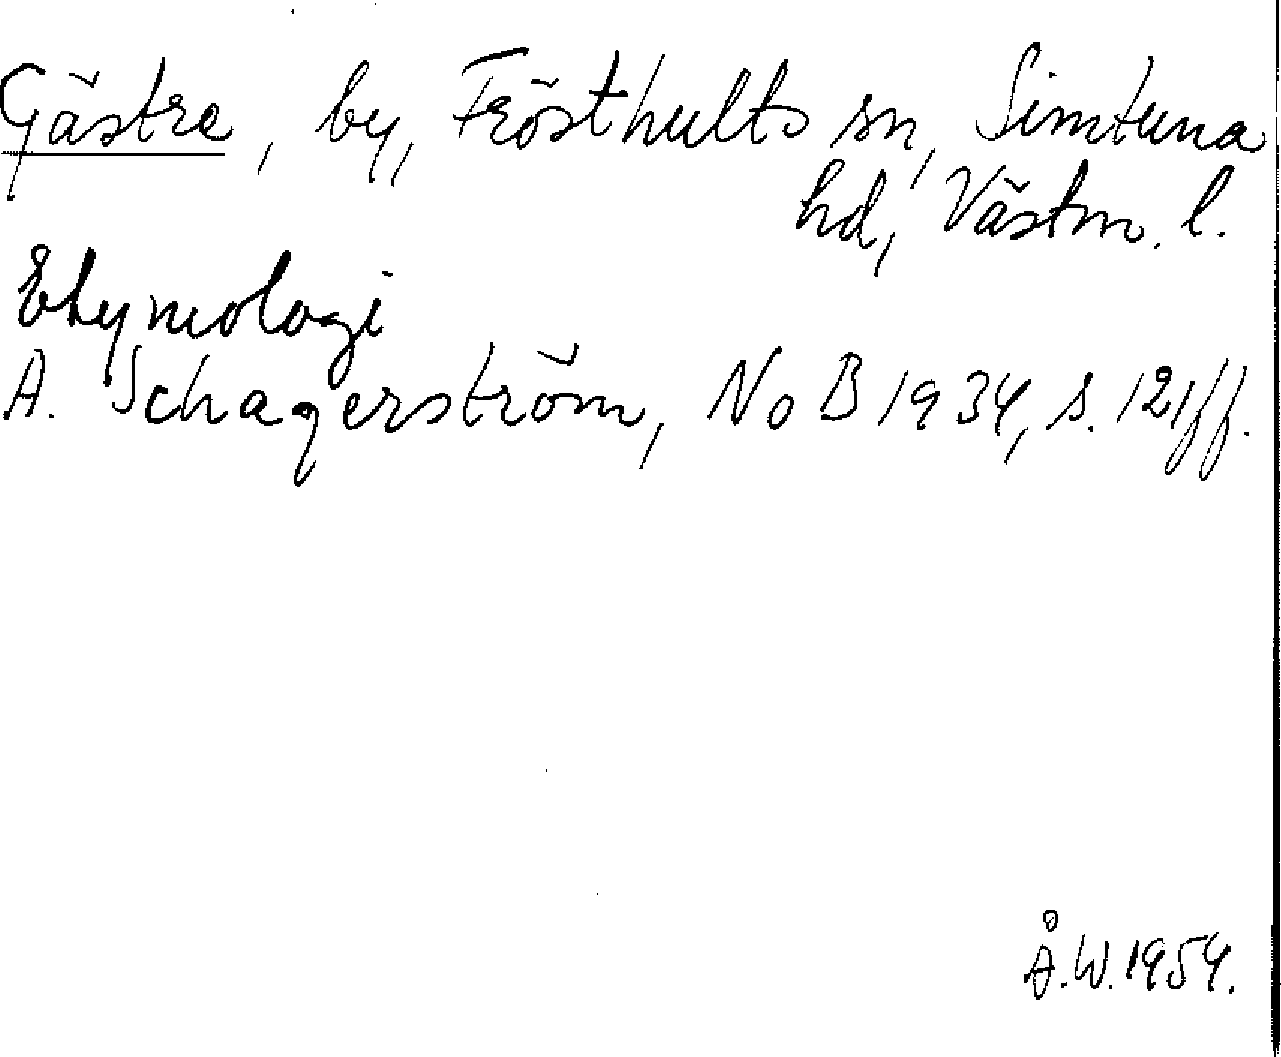 Gästre, by, Frösthults sn, Simtuna
hd, Västm. l.
Etymologi
A. Schagerström, NoB 1934, s. 121ff.
Å.W. 1954.